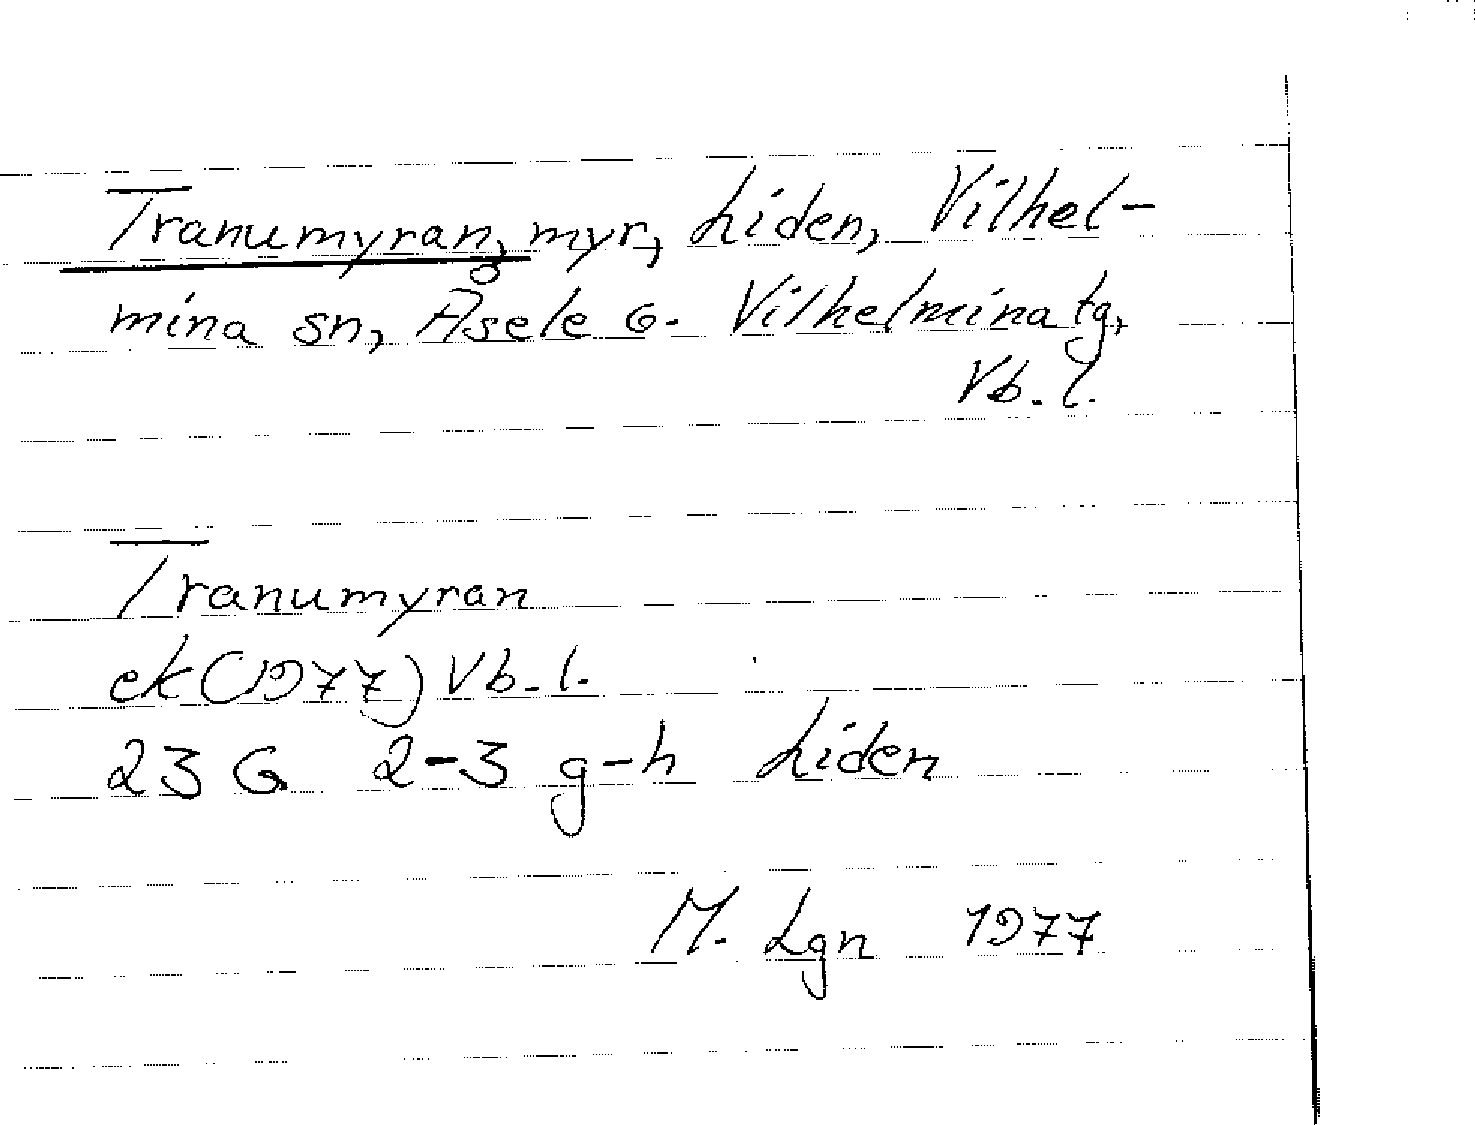 Tranumyran, myr, Liden, Vilhel-
mina sn, Åsele G. Vilhelmina tg,
Vb. l.
Tranumyran
ek (1977) Vb. l.
23 G 2-3 g-h Liden
M. Lgn 1977